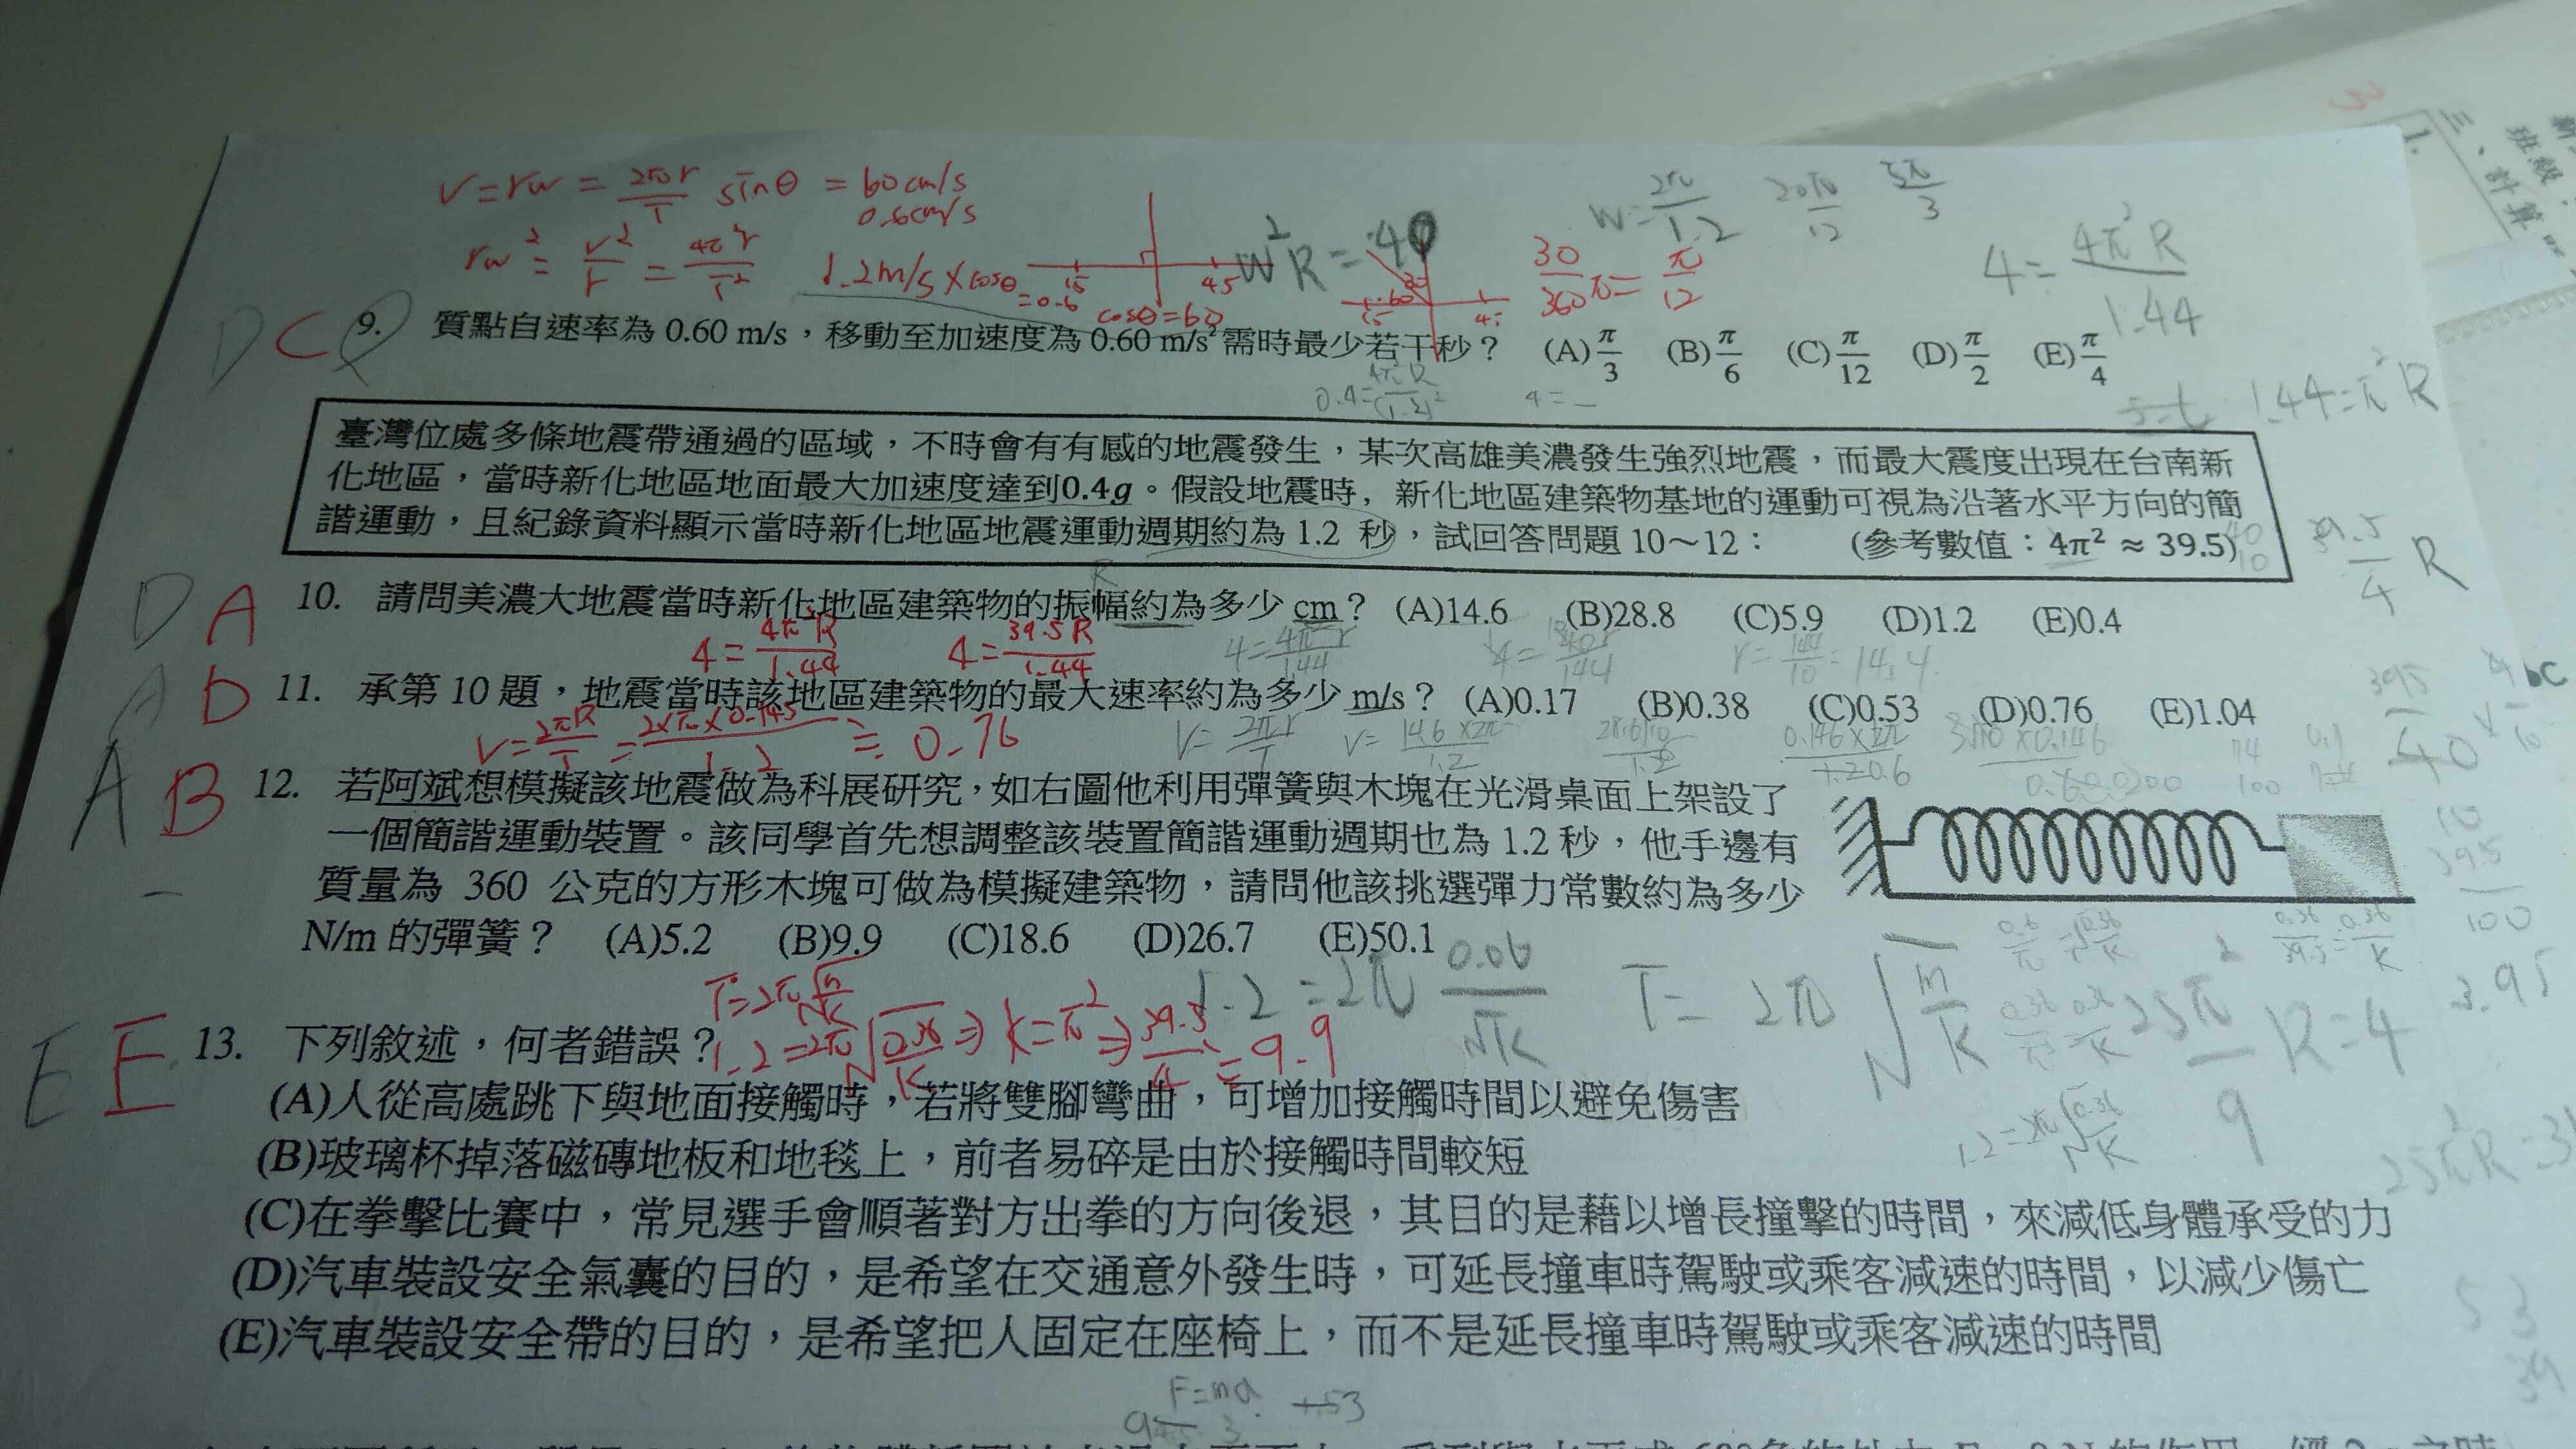 v=rw = 2πr/T sinθ = 60cm/s
0.6cm/s
rw² = v²/r = 4π²r/T²
1.2m/s×cosθ
=0.6
15
45
cosθ=60
w²R = 40
30/360 π = π/12
w=2π/1.2 20π/12 5π/3
4=4π²R/1.44
D C 9. 質點自速率為 0.60 m/s,移動至加速度為 0.60 m/s²需時最少若干秒? (A)π/3 (B)π/6 (C)π/12 (D)π/2 (E)π/4
0.4=4π²R/(1.2)² 4=
1.44=π²R
臺灣位處多條地震帶通過的區域,不時會有有感的地震發生,某次高雄美濃發生強烈地震,而最大震度出現在台南新
化地區,當時新化地區地面最大加速度達到0.4g。假設地震時,新化地區建築物基地的運動可視為沿著水平方向的簡
諧運動,且紀錄資料顯示當時新化地區地震運動週期約為 1.2 秒,試回答問題 10~12: (參考數值:4π² ≈ 39.5)
39.5/4 R
D A 10. 請問美濃大地震當時新化地區建築物的振幅約為多少 cm? (A)14.6 (B)28.8 (C)5.9 (D)1.2 (E)0.4
4=4π²R/1.44 4=39.5R/1.44 4=4π²r/1.44 r=144/10=14.4
A D 11. 承第 10 題,地震當時該地區建築物的最大速率約為多少 m/s? (A)0.17 (B)0.38 (C)0.53 (D)0.76 (E)1.04
v=2πR/T=2×π×0.145/1.2≒0.76 V=2πr/T V=14.6×2π/1.2 0.146×2π/1.2
A B 12. 若阿斌想模擬該地震做為科展研究,如右圖他利用彈簧與木塊在光滑桌面上架設了
一個簡諧運動裝置。該同學首先想調整該裝置簡諧運動週期也為 1.2 秒,他手邊有
質量為 360 公克的方形木塊可做為模擬建築物,請問他該挑選彈力常數約為多少
N/m 的彈簧? (A)5.2 (B)9.9 (C)18.6 (D)26.7 (E)50.1
T=2π√m/K
1.2=2π√0.36/K ⇒ K=π² ⇒ 39.5/4=9.9
1.2=2π 0.06/√K T=2π√m/K
25π²/9 R=4
3.95
E E 13. 下列敘述,何者錯誤?
(A)人從高處跳下與地面接觸時,若將雙腳彎曲,可增加接觸時間以避免傷害
1.2=2π√0.36/K
(B)玻璃杯掉落磁磚地板和地毯上,前者易碎是由於接觸時間較短
(C)在拳擊比賽中,常見選手會順著對方出拳的方向後退,其目的是藉以增長撞擊的時間,來減低身體承受的力
(D)汽車裝設安全氣囊的目的,是希望在交通意外發生時,可延長撞車時駕駛或乘客減速的時間,以減少傷亡
(E)汽車裝設安全帶的目的,是希望把人固定在座椅上,而不是延長撞車時駕駛或乘客減速的時間
F=ma +53
三、計算
班級:
1.